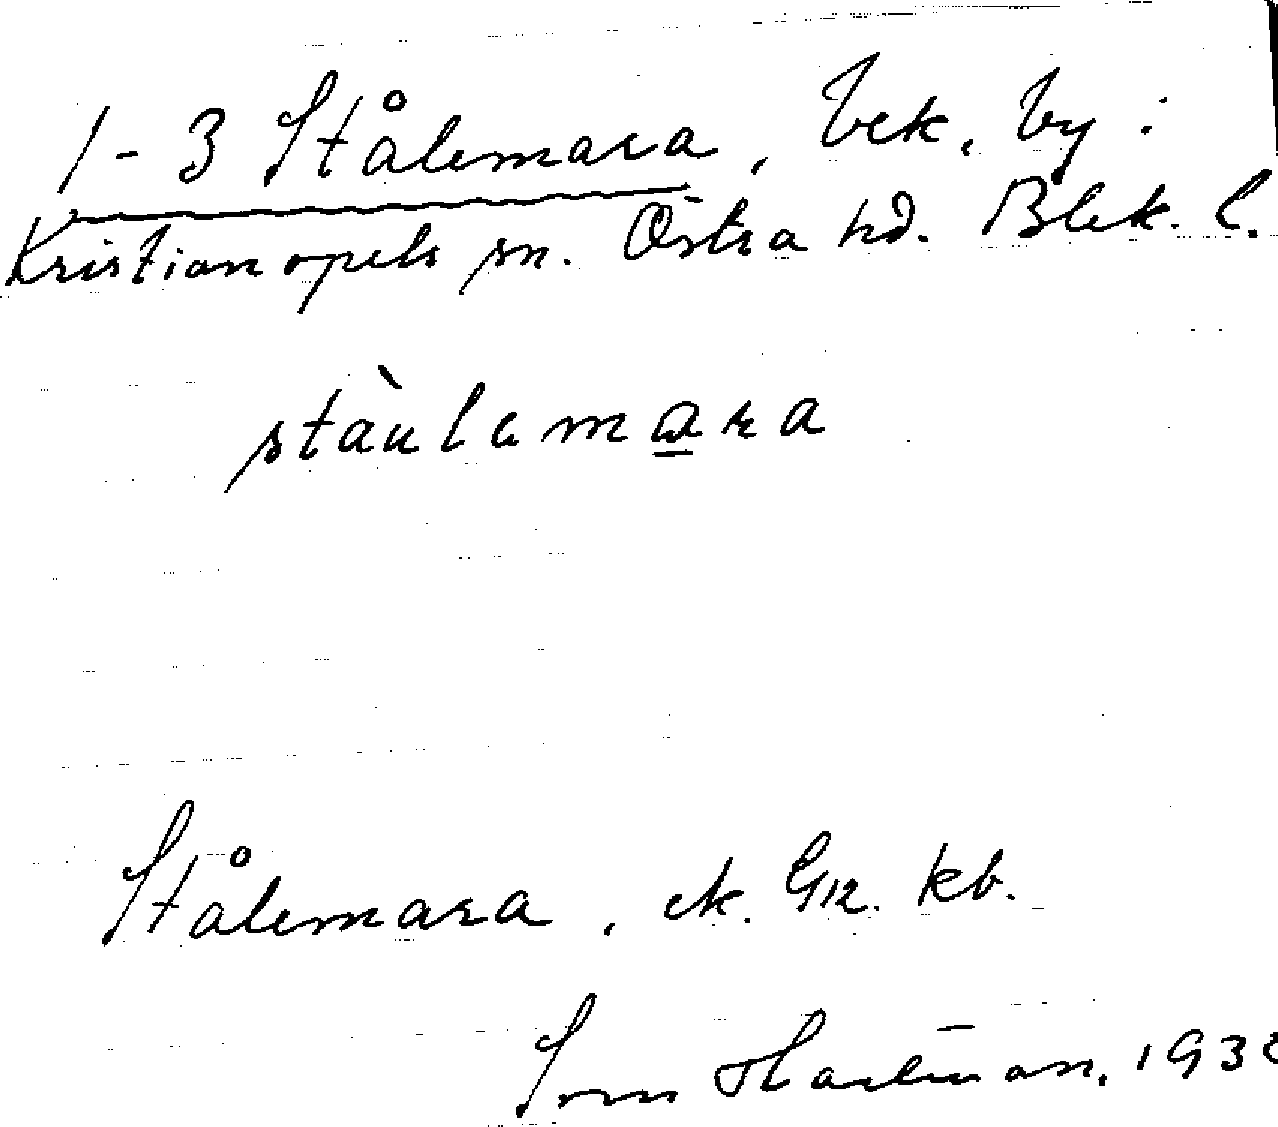 1-3 Stålemara, bek. by:
Kristianopels sn. Östra hd. Blek. l.
stàulemara
Stålemara, ek. Gr. kb.
Sven Hartman, 193